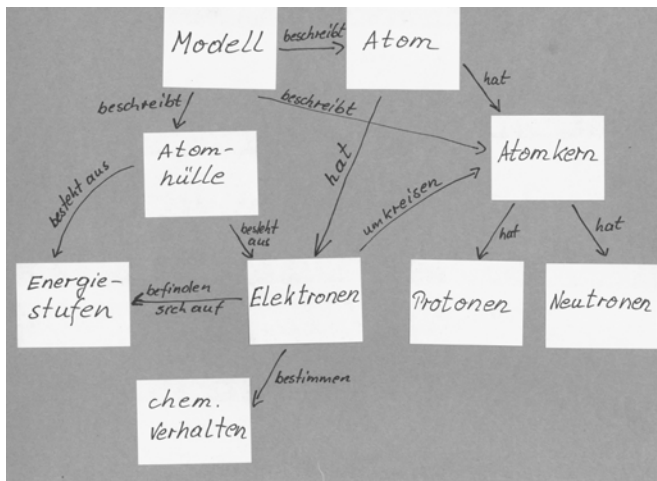 Modell
beschreibt
Atom
hat
beschreibt
beschreibt
Atom-
hülle
hat
Atomkern
besteht aus
besteht
aus
umkreisen
hat
hat
Energie-
stufen
befinden
sich auf
Elektronen
Protonen
Neutronen
bestimmen
chem.
Verhalten